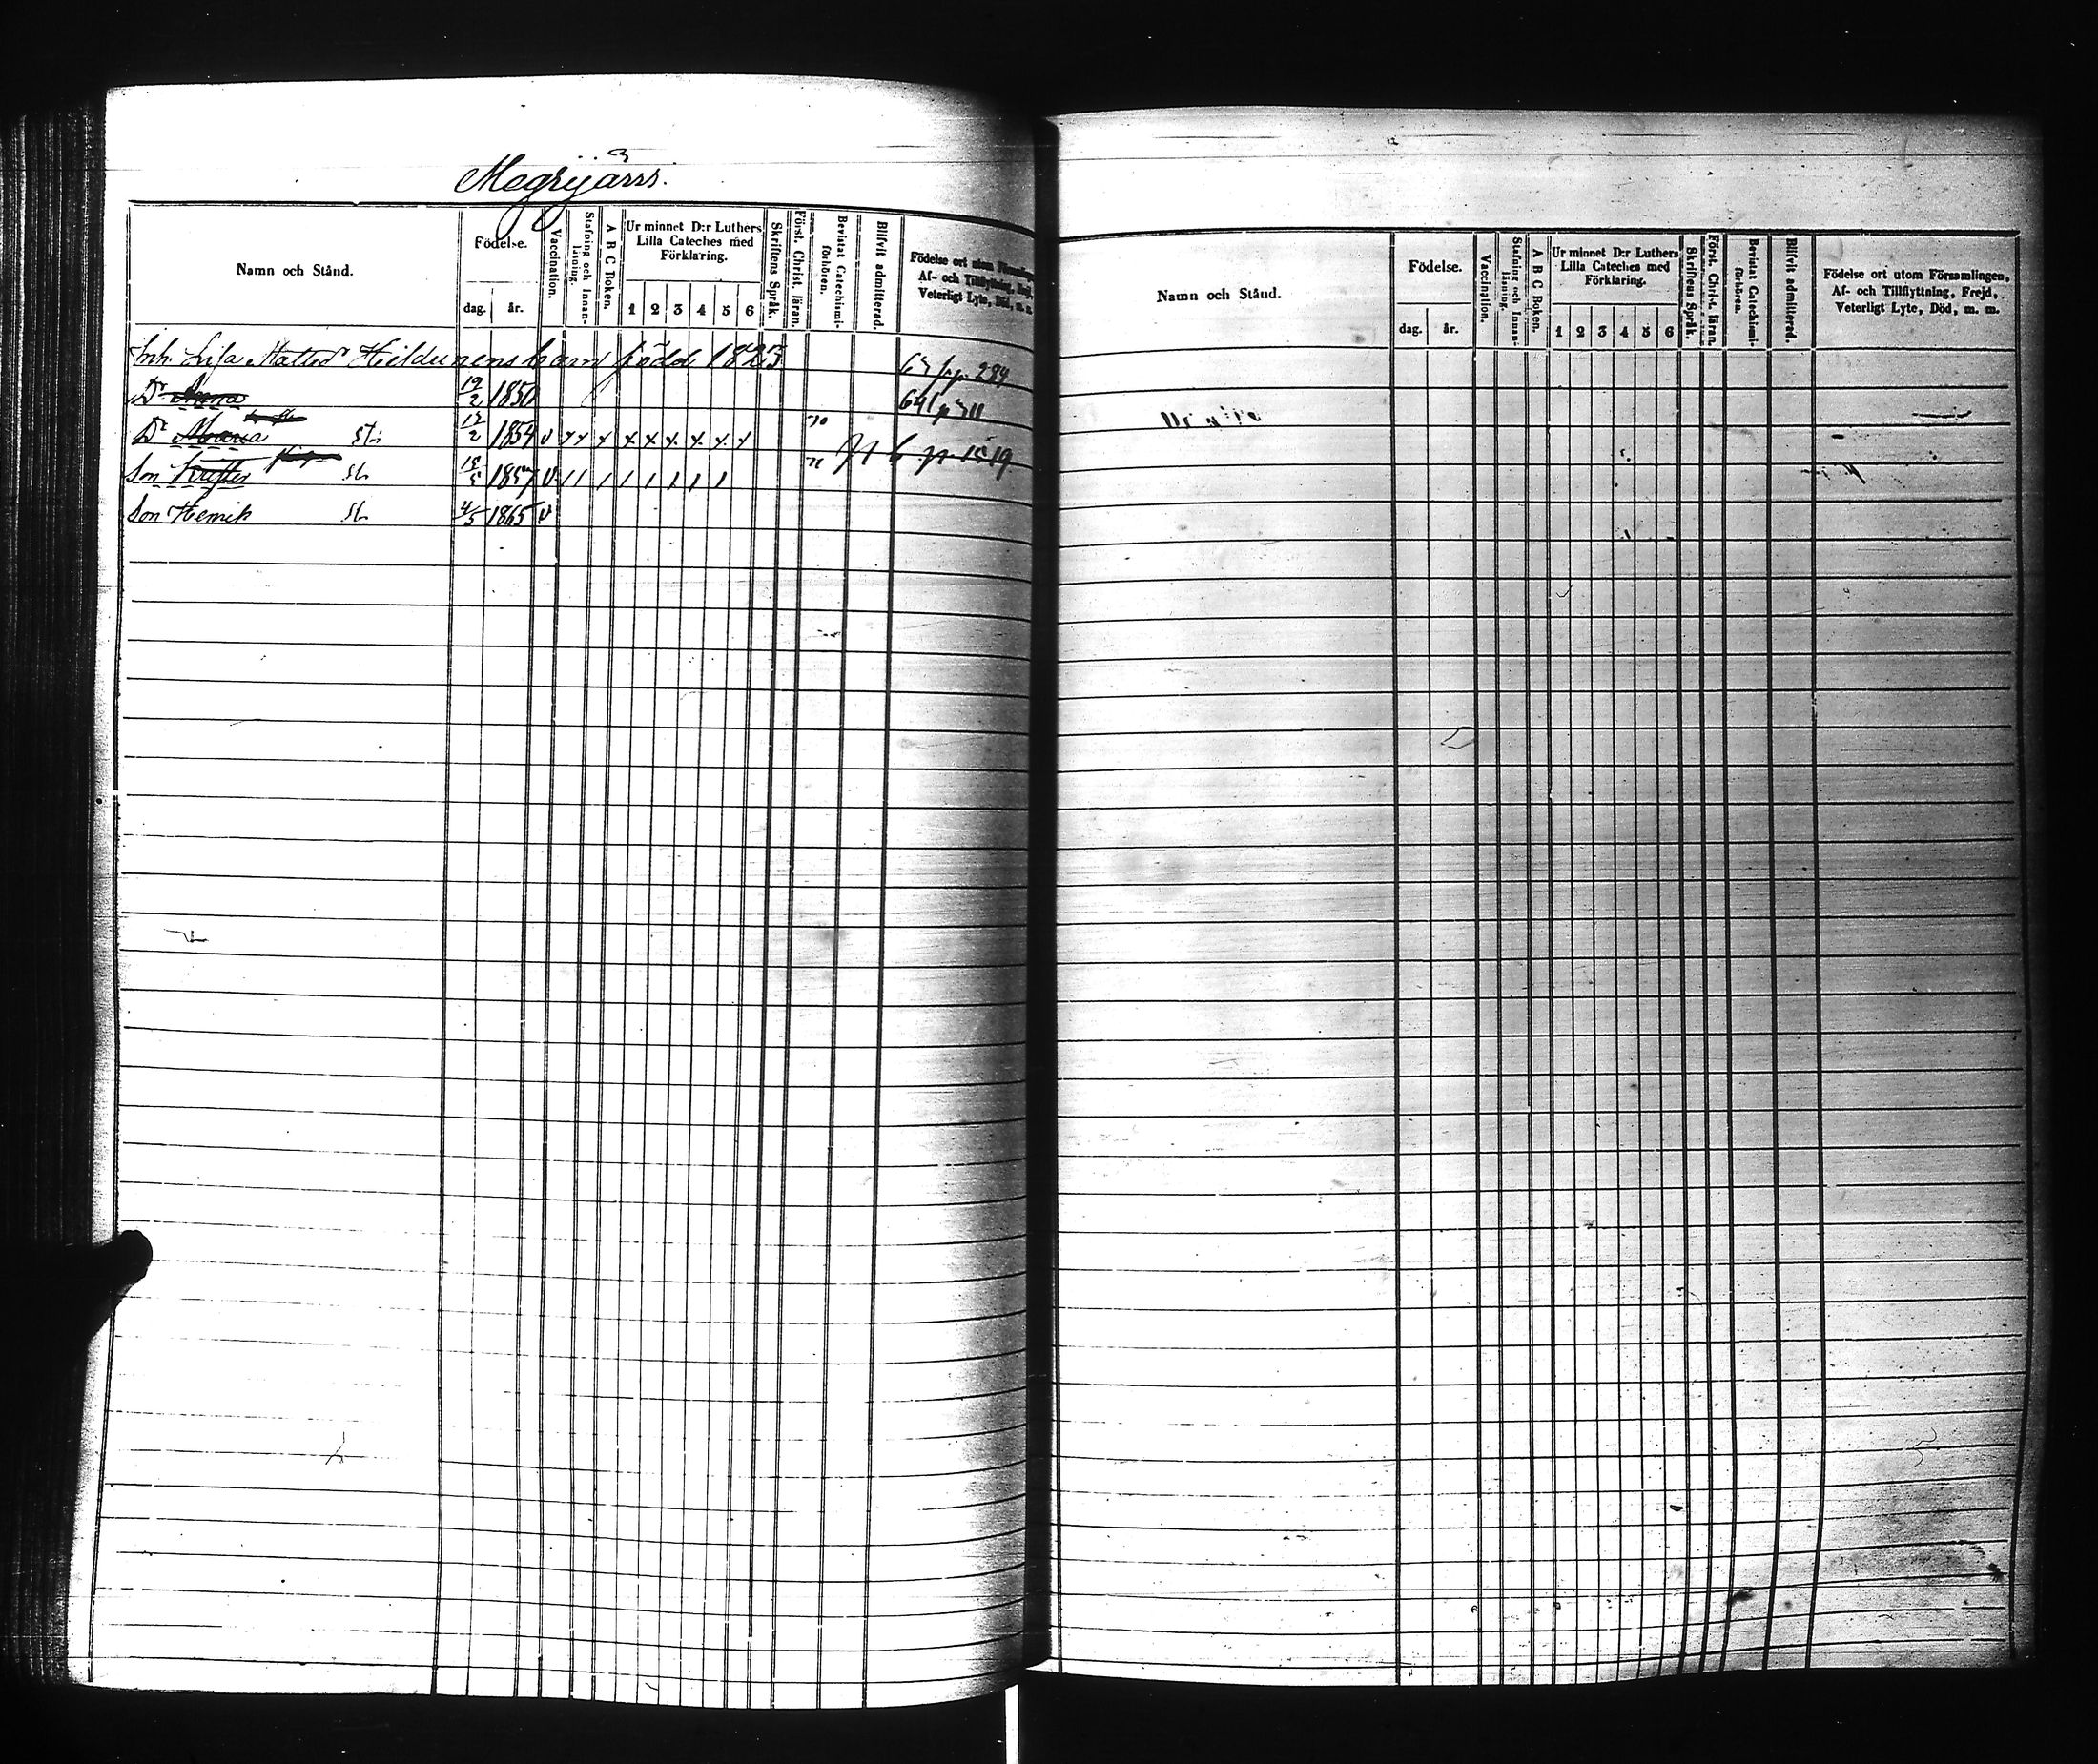 Namn och Stånd.
Födelse.
dag. år.
Vaccination.
Stafning och Innanläsning.
A B C Boken.
Ur minnet D:r Luthers Lilla Cateches med Förklaring.
1 2 3 4 5 6
Skriftens Språk.
Först. Christ. läran.
Bevistat Catechismiförhören.
Blifvit admitterad.
Födelse ort utom
Af- och Tillflyttning,
Veterligt Lyte, Död, m. m.
Inh. Lisa Matts Dr barn född 1825
Dr Anna 19/2 1850
Dr Maria 1854 v x x x x x x x x x
Son 1857 v / / / / / / / /
Son Henrik 4/5 1865 v
Namn och Stånd.
Födelse.
dag. år.
Vaccination.
Stafning och Innanläsning.
A B C Boken.
Ur minnet D:r Luthers Lilla Cateches med Förklaring.
1 2 3 4 5 6
Skriftens Språk.
Först. Christ. läran.
Bevistat Catechismiförhören.
Blifvit admitterad.
Födelse ort utom Församlingen,
Af- och Tillflyttning, Frejd,
Veterligt Lyte, Död, m. m.